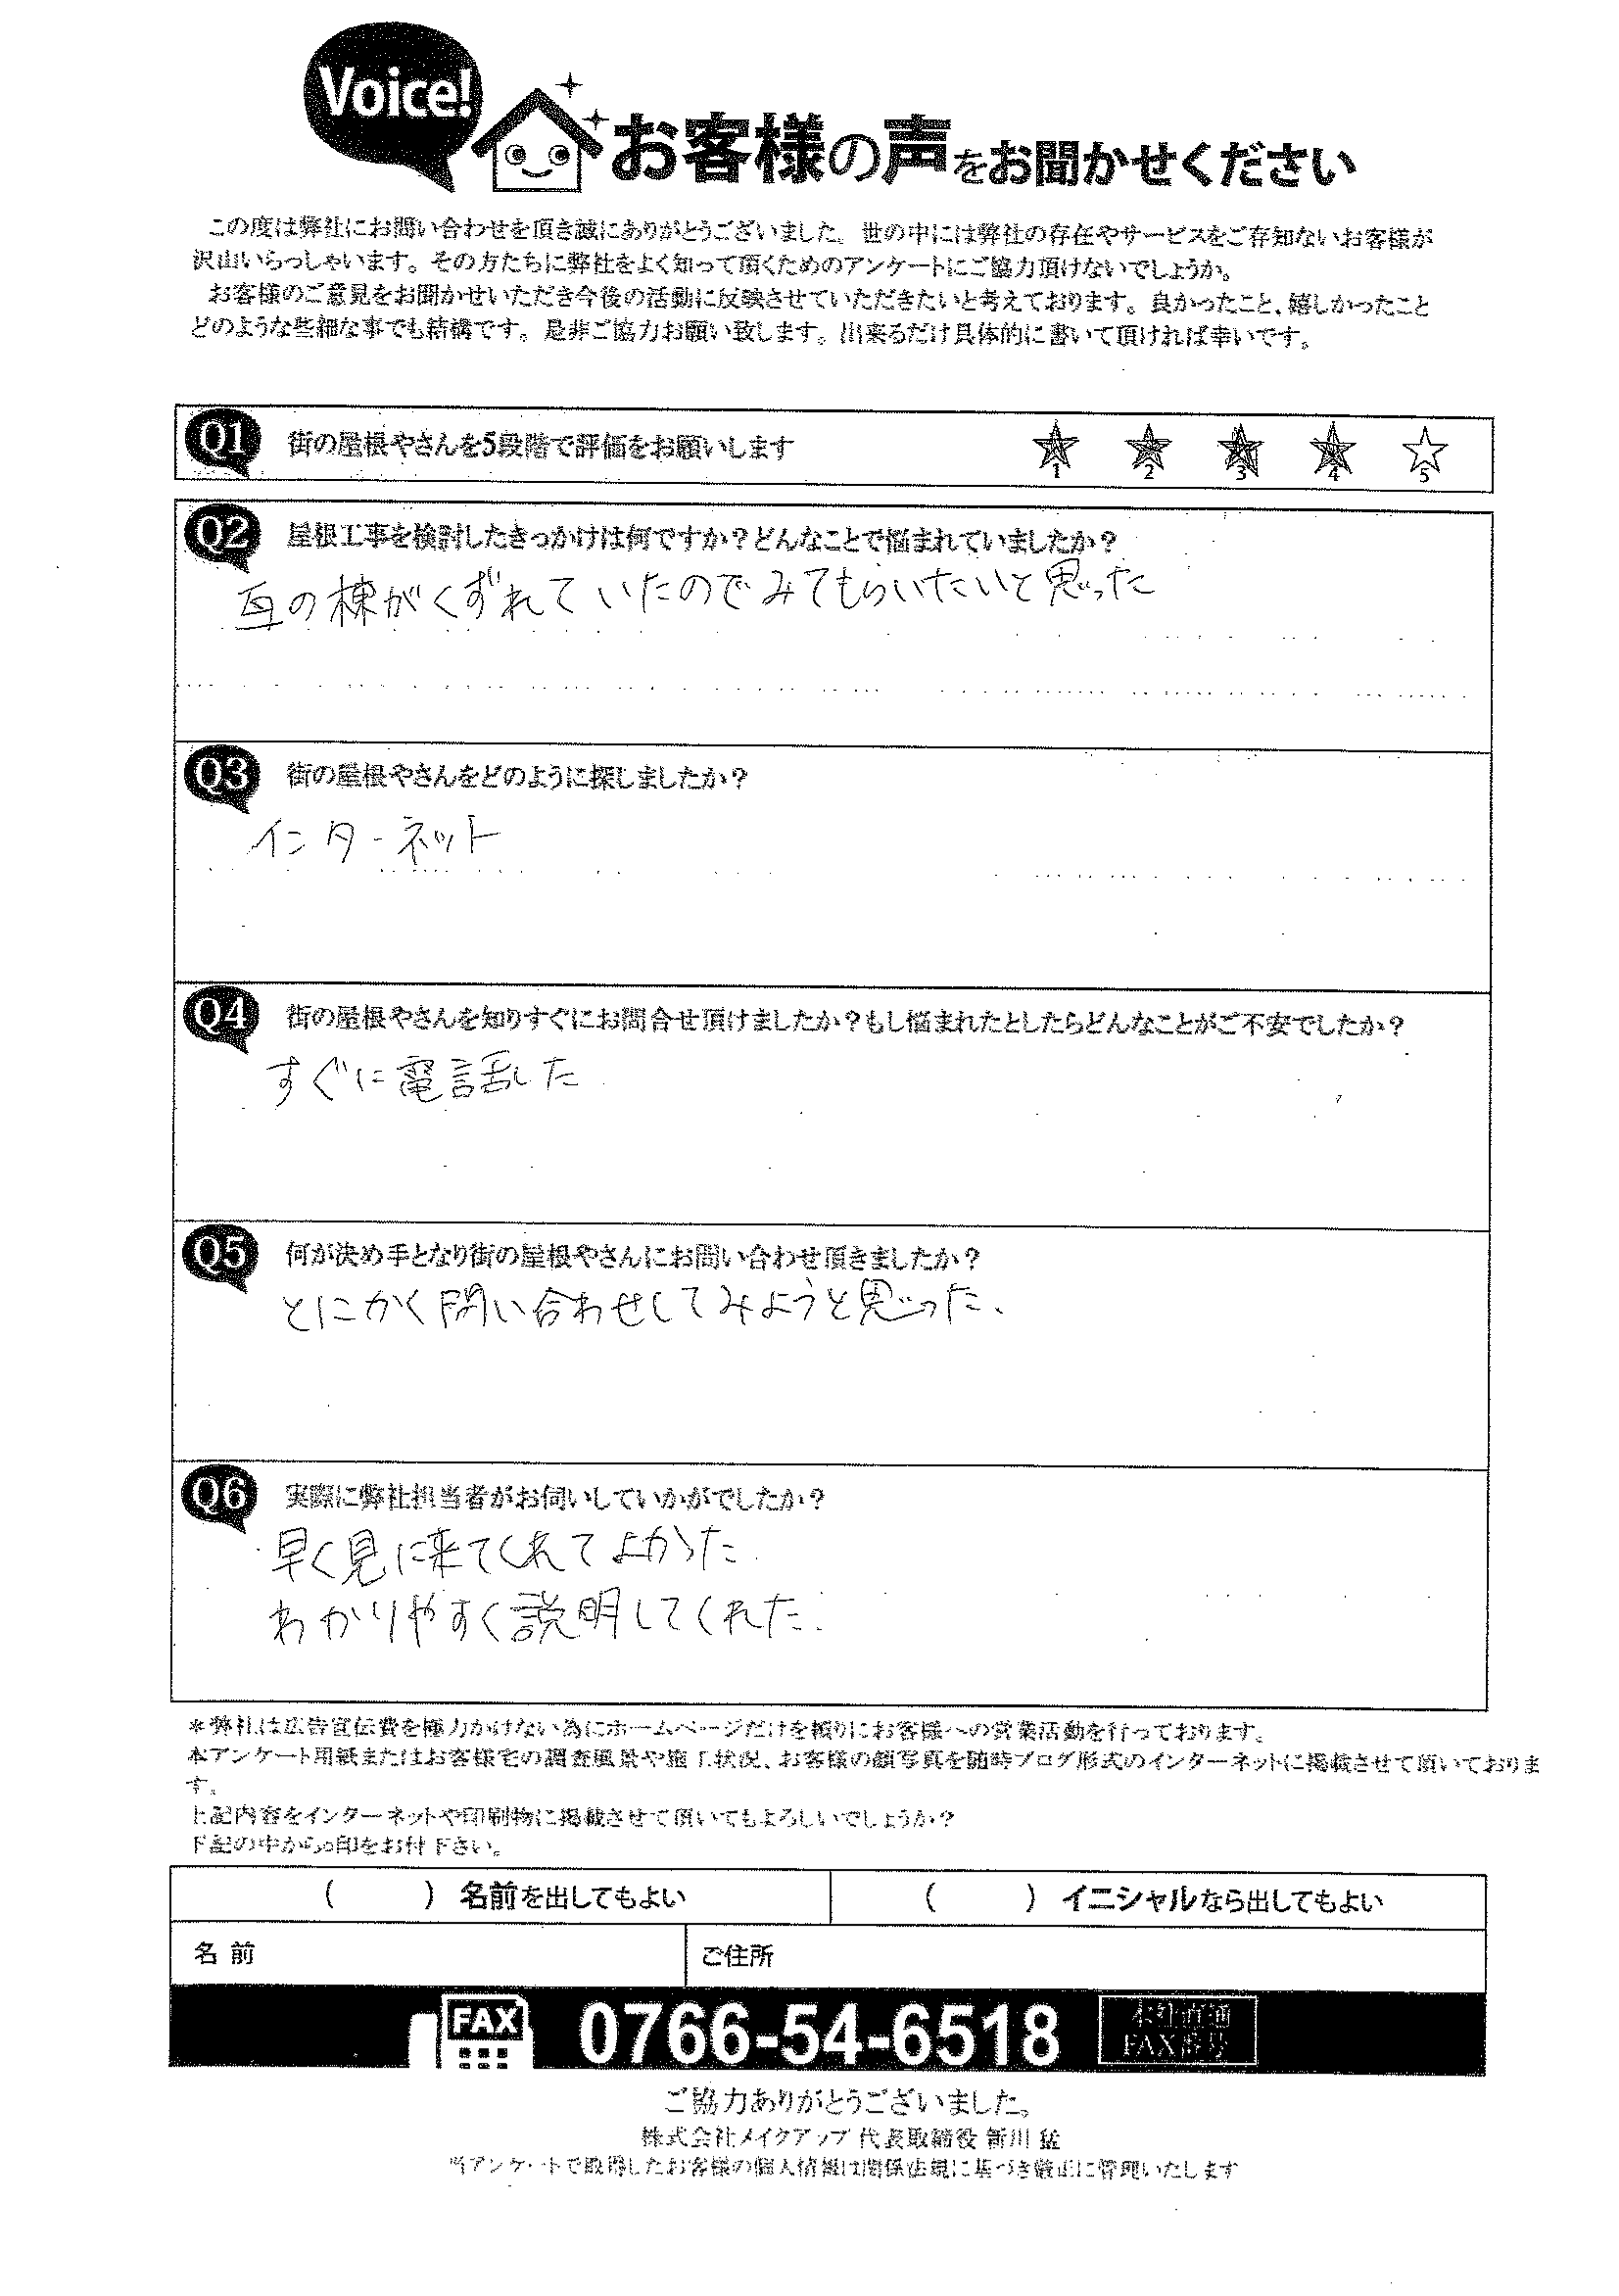 Voice!
お客様の声をお聞かせください
この度は弊社にお問い合わせを頂き誠にありがとうございました。世の中には弊社の存在やサービスをご存知ないお客様が
沢山いらっしゃいます。その方たちに弊社をよく知って頂くためのアンケートにご協力頂けないでしょうか。
お客様のご意見をお聞かせいただき今後の活動に反映させていただきたいと考えております。良かったこと、嬉しかったこと
どのような些細な事でも結構です。是非ご協力お願い致します。出来るだけ具体的に書いて頂ければ幸いです。
Q1 街の屋根やさんを5段階で評価をお願いします 1 2 3 4 5
Q2 屋根工事を検討したきっかけは何ですか？どんなことで悩まれていましたか？
瓦の棟がくずれていたのでみてもらいたいと思った
Q3 街の屋根やさんをどのように探しましたか？
インターネット
Q4 街の屋根やさんを知りすぐにお問合せ頂けましたか？もし悩まれたとしたらどんなことがご不安でしたか？
すぐに電話した
Q5 何が決め手となり街の屋根やさんにお問い合わせ頂きましたか？
とにかく問い合わせしてみようと思った、
Q6 実際に弊社担当者がお伺いしていかがでしたか？
早く見に来てくれてよかった
わかりやすく説明してくれた.
＊弊社は広告宣伝費を極力かけない為にホームページだけを頼りにお客様への営業活動を行っております。
本アンケート用紙またはお客様宅の調査風景や施工状況、お客様の顔写真を随時ブログ形式のインターネットに掲載させて頂いておりま
す。
上記内容をインターネットや印刷物に掲載させて頂いてもよろしいでしょうか？
下記の中から○印をお付下さい。
（　　）名前を出してもよい （　　）イニシャルなら出してもよい
名前 ご住所
FAX 0766-54-6518 本社直通
FAX番号
ご協力ありがとうございました。
株式会社メイクアップ 代表取締役 新川 猛
当アンケートで取得したお客様の個人情報は関係法規に基づき厳正に管理いたします